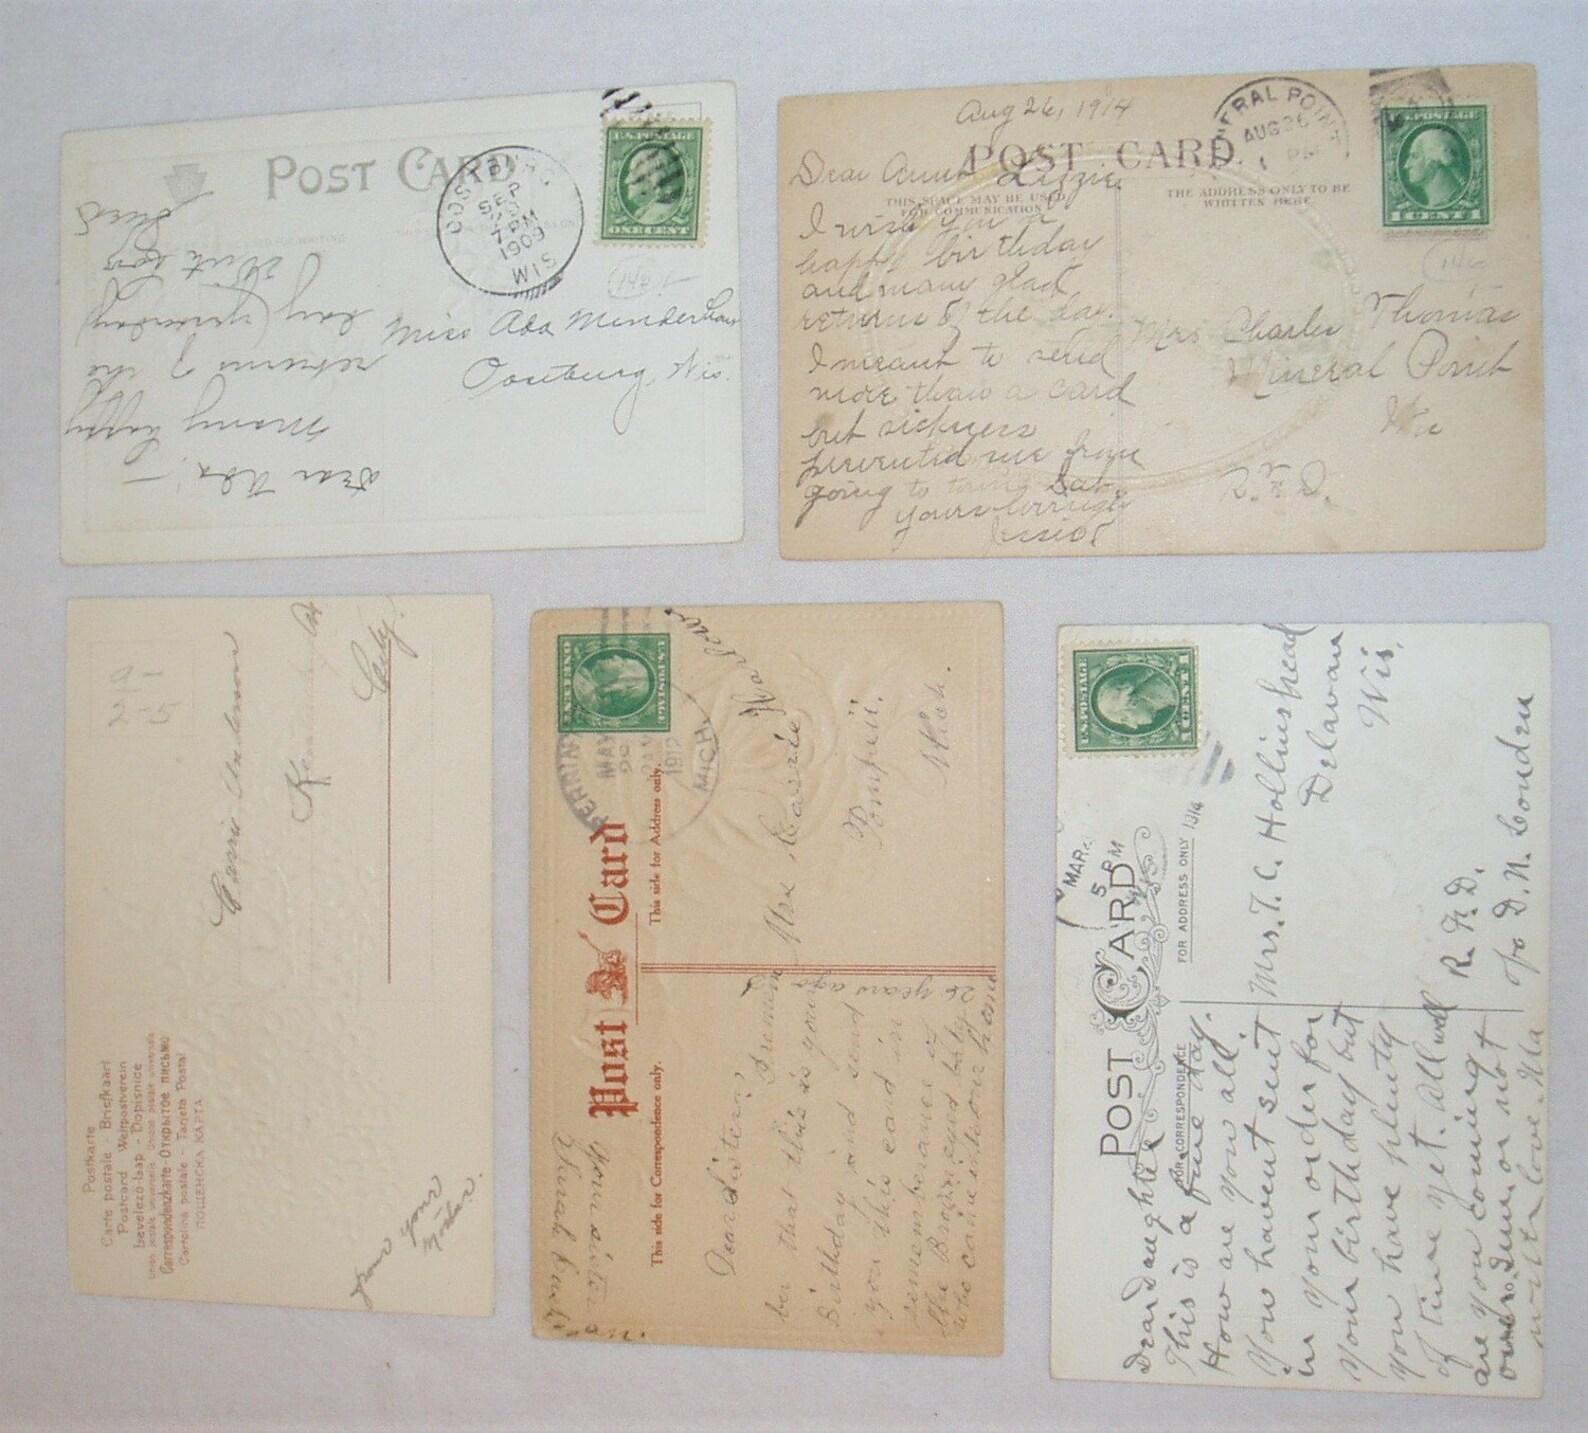 POST CARD
OOSTBURG
SEP
7 PM
1909
WIS
U.S. POSTAGE
ONE CENT
Miss Ada
Oostburg, Wis.
Dear Ada:—
Many happy
returns of the
day (yesterday)
Aug 26, 1914
POST CARD.
THIS SPACE MAY BE USED
FOR COMMUNICATION
THE ADDRESS ONLY TO BE
WRITTEN HERE
ERAL POINT
AUG 26
PM
U.S. POSTAGE
1 CENT 1
Dear Aunt Lizzie
I wish you a
happy birthday
and many glad
returns of the day.
I meant to send
more than a card
but sickness
prevented me from
going to town Sat.
Yours lovingly
Jessie
Mrs Charles Thomas
Mineral Point
Wis
R.F.D.
Postkarte
Carte postale - Briefkaart
Postcard Weltpostverein
Levelező-lap - Dopisnice
Union postale universelle
Correspondenzkarte - Открытое письмо
Cartolina postale - Tarjeta Postal
ПОЩЕНСКА КАРТА
Carrie Anderson
City.
from your
Post Card
This side for Correspondence only.
This side for Address only.
U.S. POSTAGE
ONE CENT
PERRIN
MAY
1912
MICH.
Mrs Carrie
Pompeii.
Mich.
Dear Sister: I remem
ber that this is your
Birthday and send
you this card in
rememberance of
the Brown eyed baby
who came into our home
26 years ago
Your sister
POST CARD
FOR CORRESPONDENCE
FOR ADDRESS ONLY
U.S. POSTAGE
1 CENT 1
MAR
5 PM
1914
Dear daughter
This is a fine day.
How are you all.
You havent sent
in your order for
your birthday but
you have plenty
of time yet. All well
are you coming
over Sun. or not
with love. Ma
Mrs. T. C. Hollinshead
Delavan
Wis.
R. F. D.
c/o D. N.